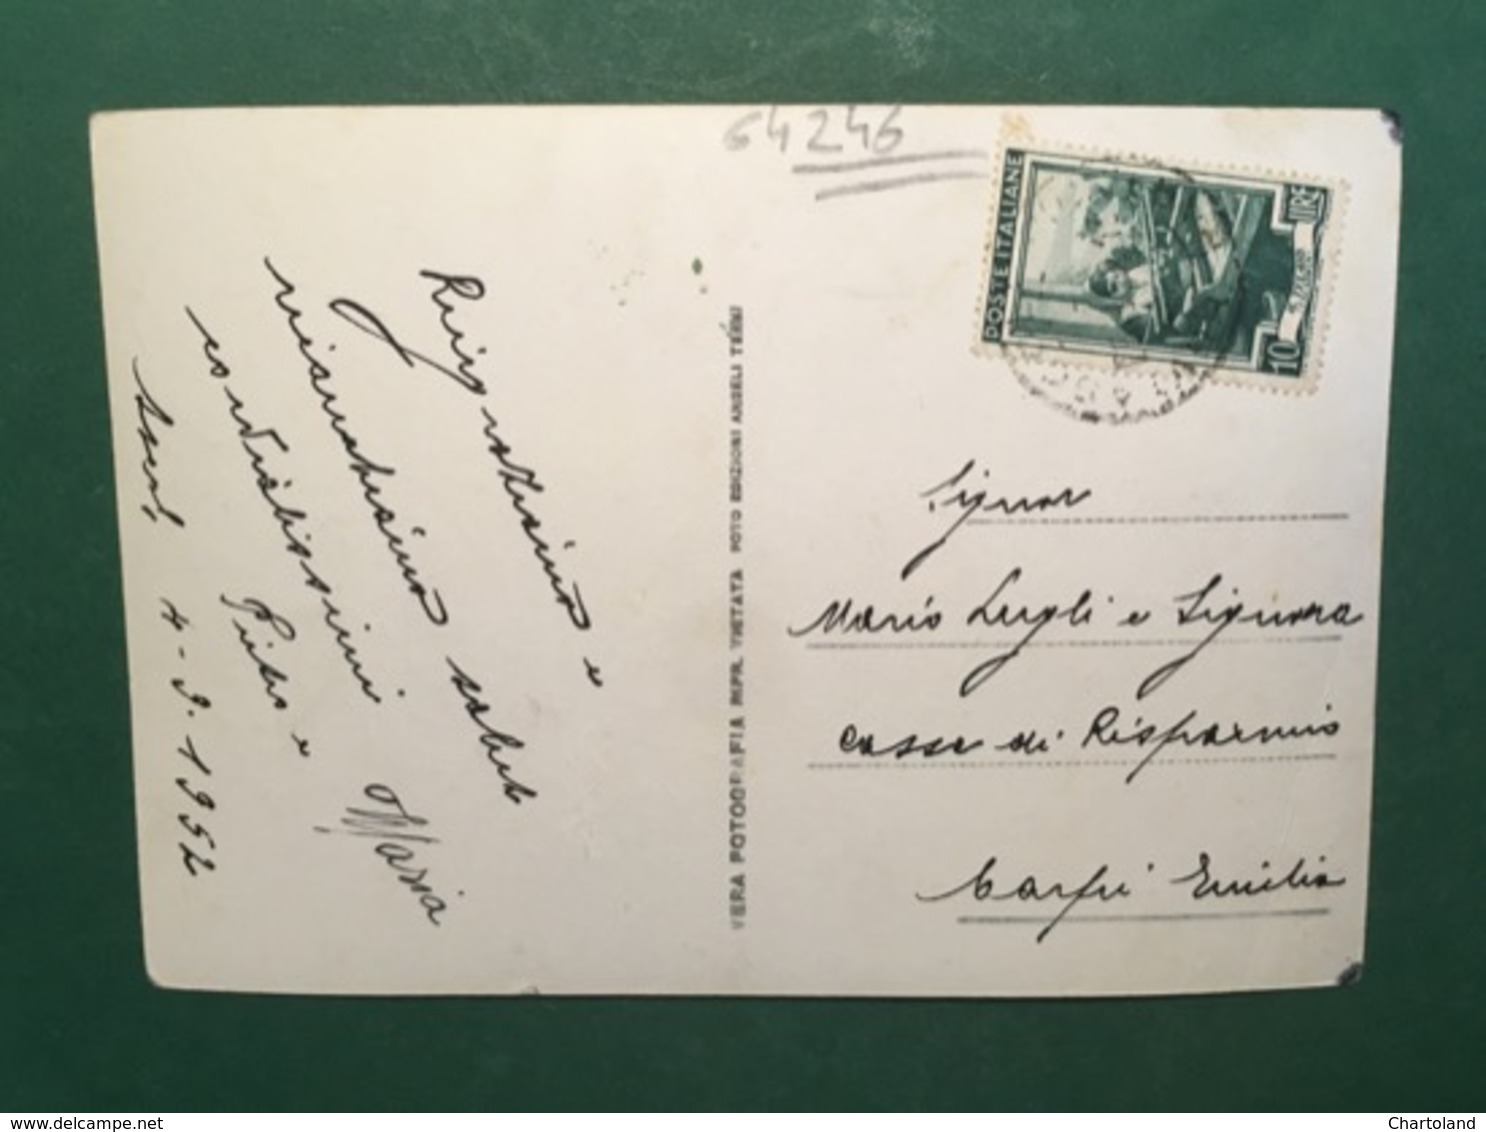 64246
POSTE ITALIANE
LIRE
10
Ringraziamo e
ricambiamo saluti
cordialissimi
Piero e
Maria
4-9-1952
VERA FOTOGRAFIA RIPR. VIETATA FOTO EDIZIONI ANGELI TERNI
Signor
Mario Lugli e Signora
Cassa di Risparmio
Carpi Emilia
delcampe.net
Chartoland